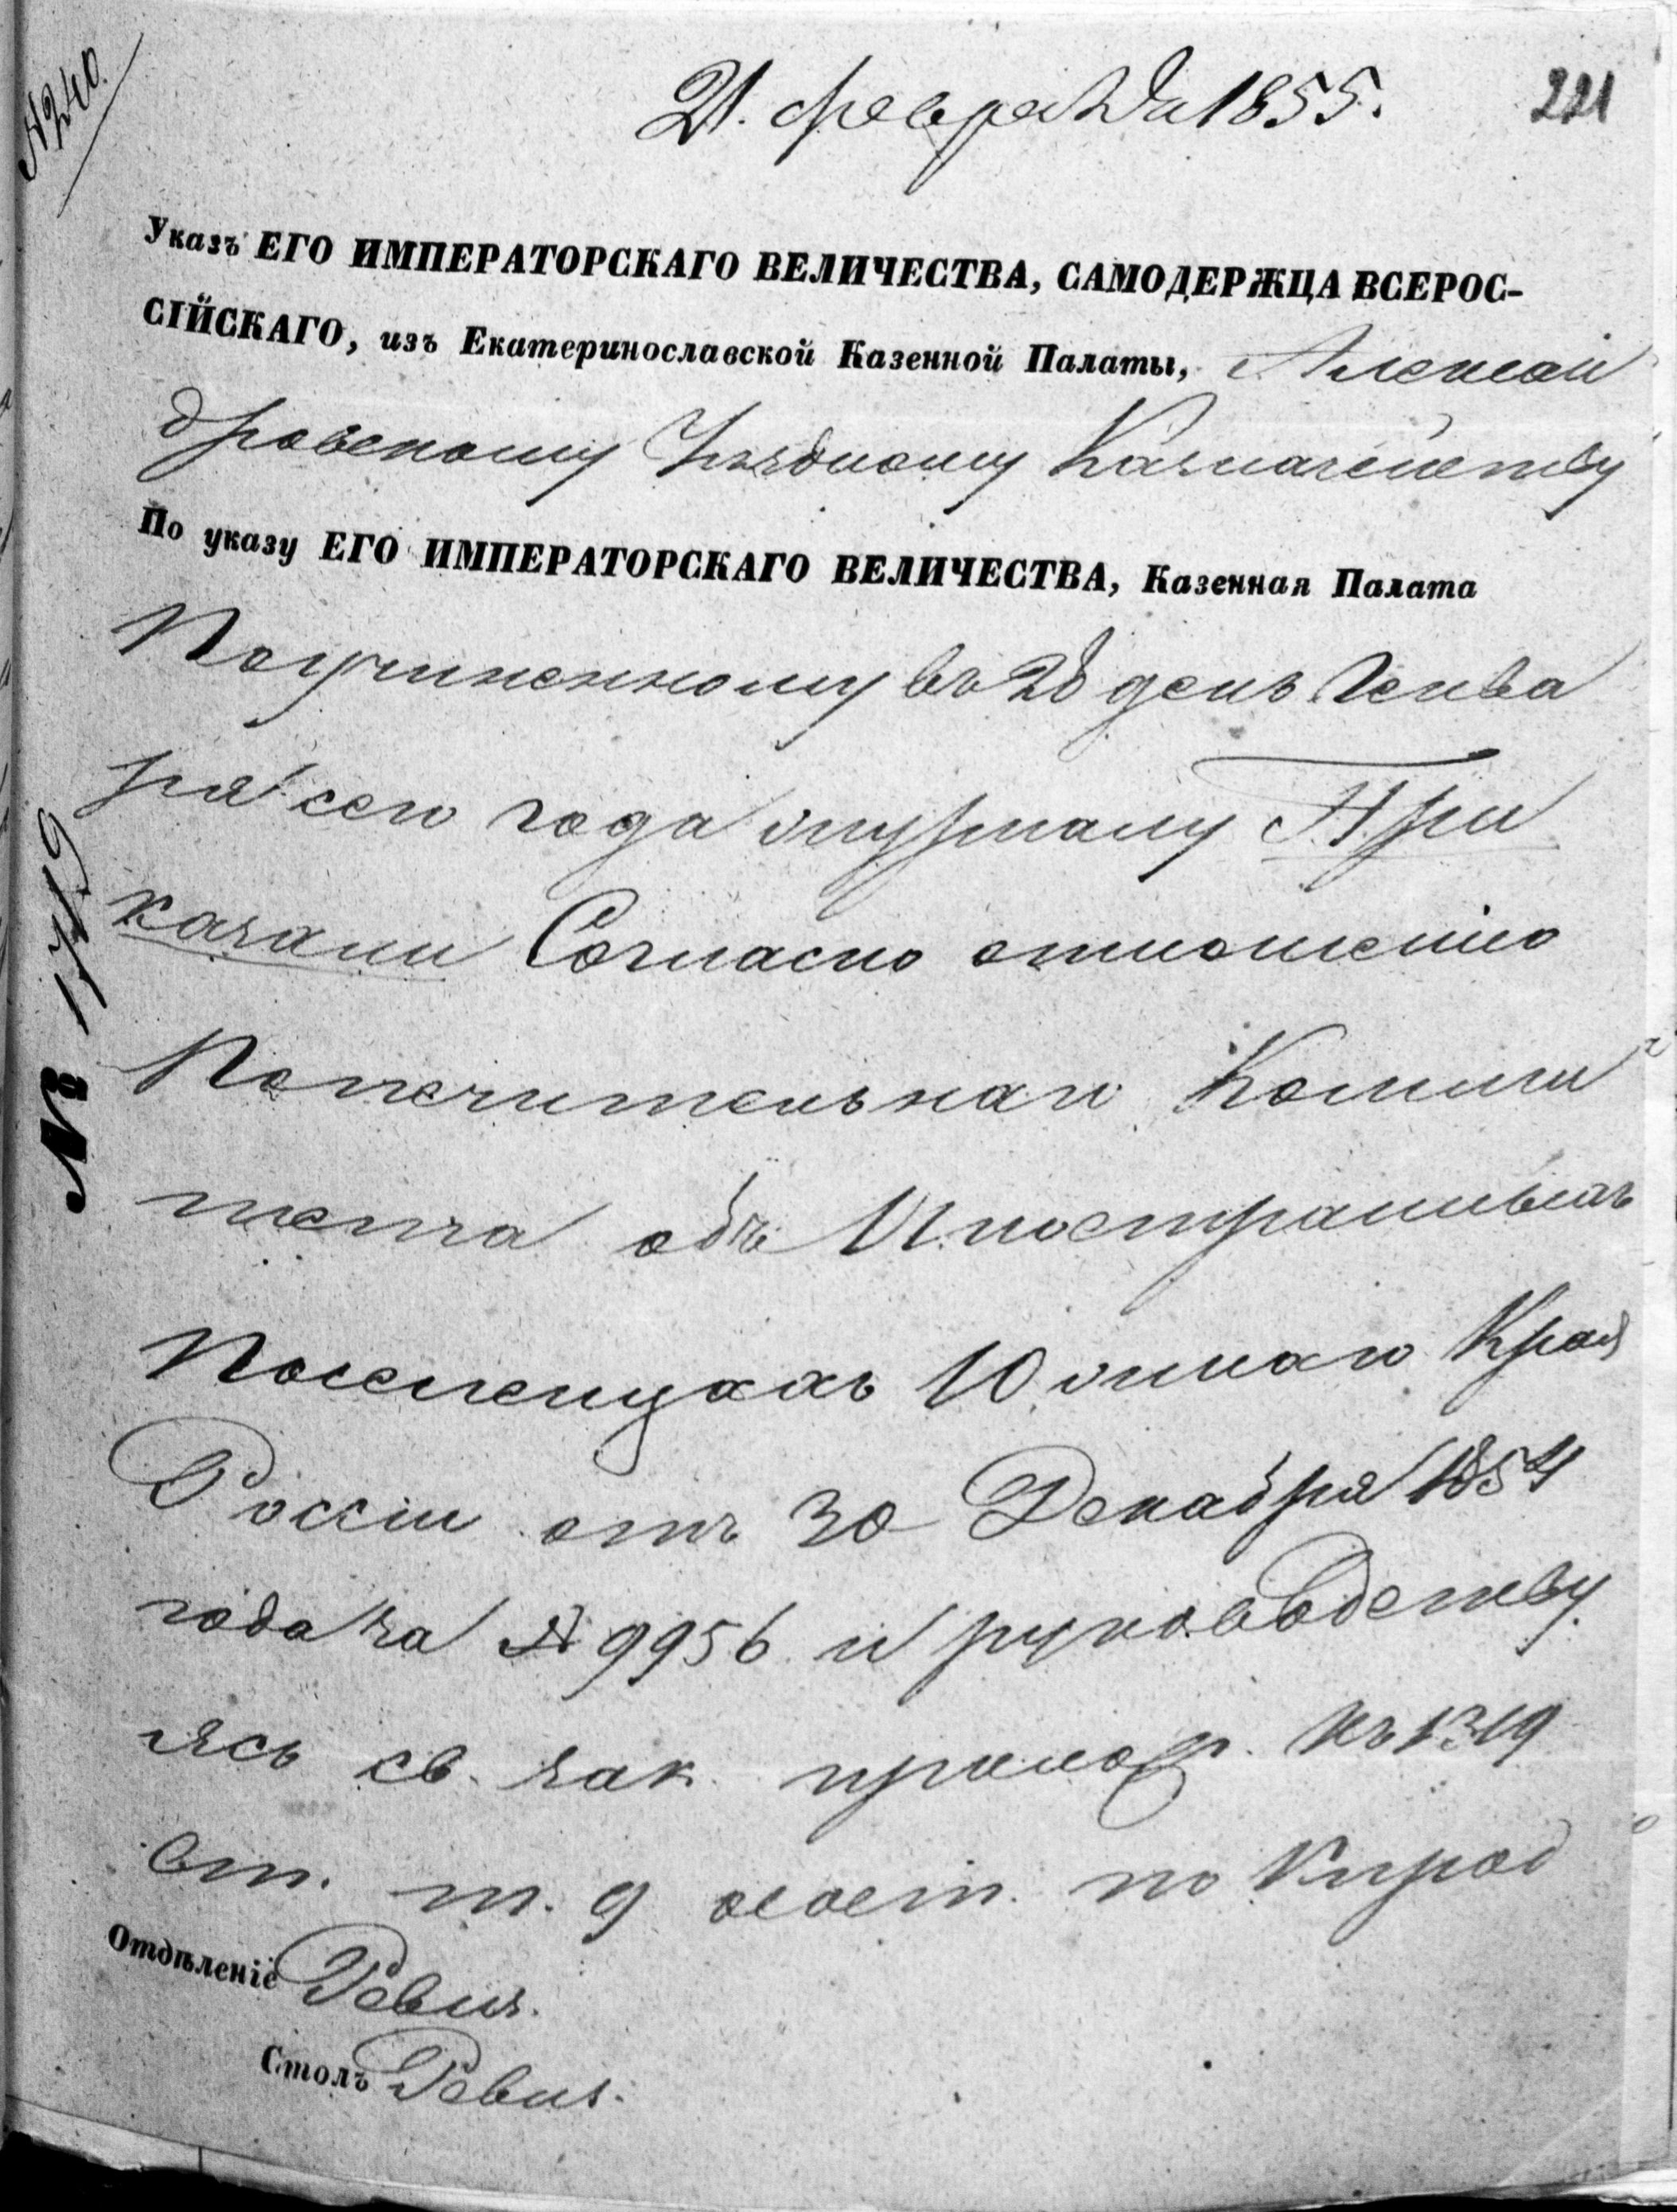 № 240.
21. февраля 1855.
221
Указъ ЕГО ИМПЕРАТОРСКАГО ВЕЛИЧЕСТВА, САМОДЕРЖЦА ВСЕРОС-
СІЙСКАГО, изъ Екатеринославской Казенной Палаты, Алексан
дровскому Уѣздному Казначейству
По указу ЕГО ИМПЕРАТОРСКАГО ВЕЛИЧЕСТВА, Казенная Палата
Поучиненному въ 28 день Генва
ря сего года журналу При
казали Согласно отношенію
Попечительнаго Коми
тета объ Иностранныхъ
Поселенцахъ Южнаго Края
Россіи отъ 30 Декабря 1854
года за № 9956 и руководству
ясь св. зак. прилож. къ 1319
ст. т. 9 сост. по
Отдѣленіе Ревиз.
Столъ Ревиз.
№ 1719